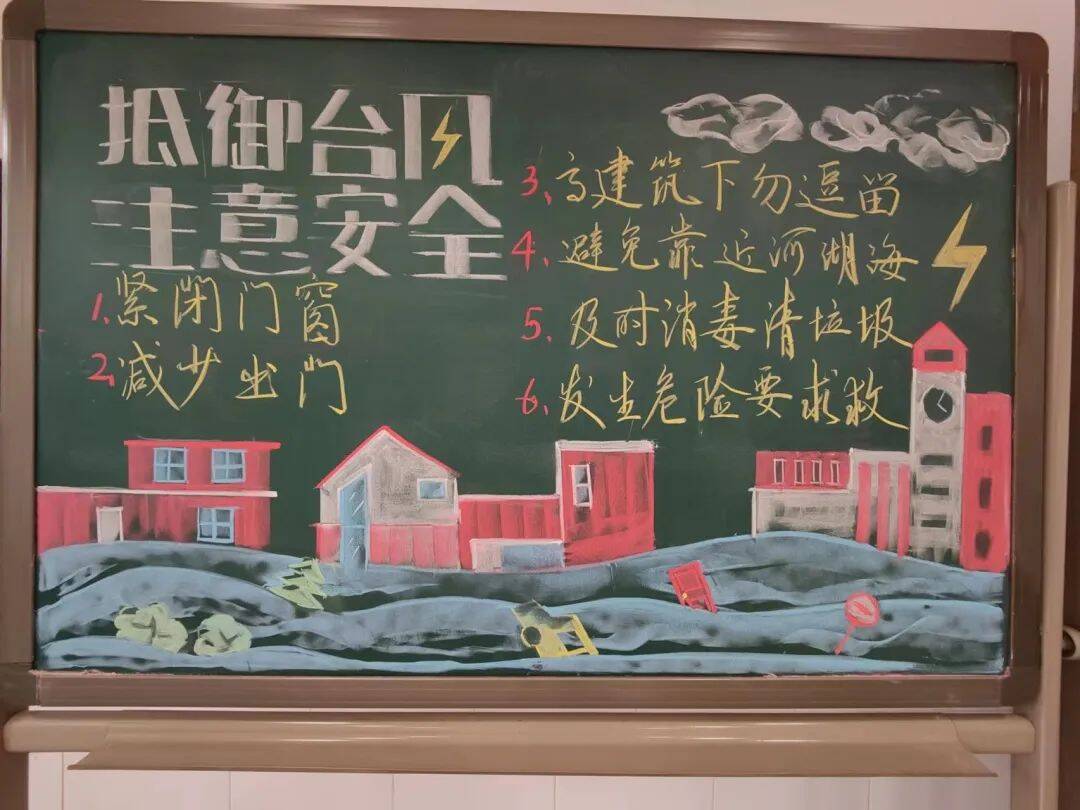 抵御台风
注意安全
1.紧闭门窗
2.减少出门
3、高建筑下勿逗留
4、避免靠近河湖海
5.及时消毒清垃圾
6、发生危险要求救